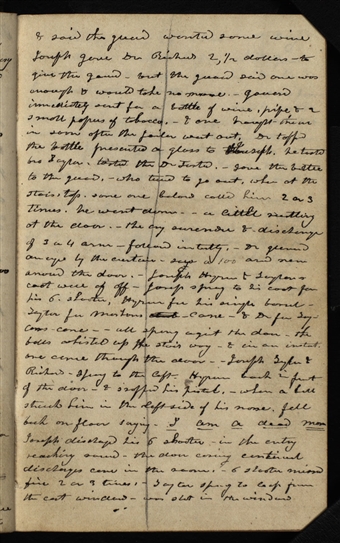 & said the guard wanted some wine
Joseph gave Dr Richards 2, 1/2 dollars to
give the guard - but the guard said one was
enough & would take no more - guard
immediately sent for a bottle of wine, pipe & 2
small papers of tobacco, - & one
in soon after the jailor went out, Dr
the bottle presented a glass to Joseph, he tasted
Bro Taylor - tasted the Dr tasted, - gave the bottle
to the guard, - who turned to go out, when at the
stairs top some one below called him 2 or 3
times. he went down. - a little rustling
at the door. - the cry surrender & discharge
of 3 or 4 arms - followed instantly, - Dr gleaned
an eye by the curtain - saw a 100 armed men
around the door. - Joseph Hyrum & Taylors
coats were off - Joseph sprung to his coat for
his 6 shooter, Hyrum for his single barrel -
Taylor for Markhams Cane - & Dr for Tay-
lors cane - - all sprung against the door - the
balls whistled up the stairs way - & in an instant
one came through the door - - Joseph Taylor &
Richards - sprung to the left - Hyrum back in front
of the door & snapped his pistol, - when a ball
struck him in the left side of his nose, fell
back on floor saying - I am a dead man
Joseph discharged his 6 shooter - in the entry
reaching round - the door casing continual
discharges came in the room. - 6 shooter missed
fire 2 or 3 times, - Taylor sprung to leap from
the east window - was shot in the window